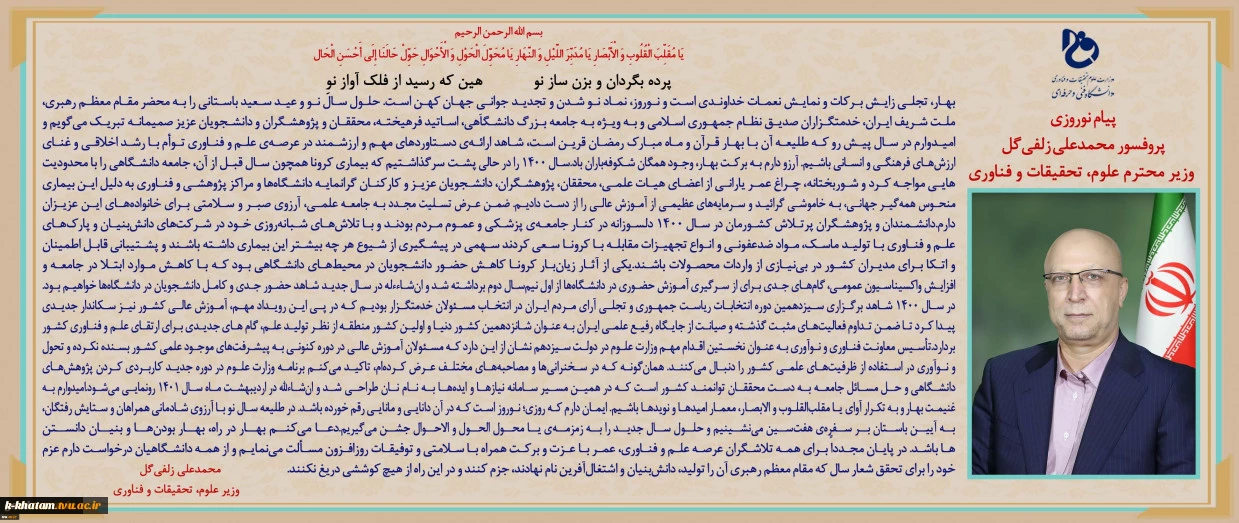 بسم الله الرحمن الرحیم
یَا مُقَلِّبَ الْقُلُوبِ وَ الْأَبْصَارِ یَا مُدَبِّرَ اللَّیْلِ وَ النَّهَارِ یَا مُحَوِّلَ الْحَوْلِ وَ الْأَحْوَالِ حَوِّلْ حَالَنَا إِلَی أَحْسَنِ الْحَالِ
پرده بگردان و بزن ساز نو هین که رسید از فلک آواز نو
بهار، تجلی زایش برکات و نمایش نعمات خداوندی است و نوروز، نماد نو شدن و تجدید جوانی جهان کهن است. حلول سال نو و عید سعید باستانی را به محضر مقام معظم رهبری،
ملت شریف ایران، خدمتگزاران صدیق نظام جمهوری اسلامی و به ویژه به جامعه بزرگ دانشگاهی، اساتید فرهیخته، محققان و پژوهشگران و دانشجویان عزیز صمیمانه تبریک می‌گویم و
امیدوارم در سال پیش رو که طلیعه آن با بهار قرآن و ماه مبارک رمضان قرین است، شاهد ارائه‌ی دستاوردهای مهم و ارزشمند در عرصه‌ی علم و فناوری توأم با رشد اخلاقی و غنای
ارزش‌های فرهنگی و انسانی باشیم. آرزو دارم به برکت بهار، وجود همگان شکوفه‌باران باد.سال ۱۴۰۰ را در حالی پشت سرگذاشتیم که بیماری کرونا همچون سال قبل از آن، جامعه دانشگاهی را با محدودیت
هایی مواجه کرد و شوربختانه، چراغ عمر یارانی از اعضای هیات علمی، محققان، پژوهشگران، دانشجویان عزیز و کارکنان گرانمایه دانشگاه‌ها و مراکز پژوهشی و فناوری به دلیل این بیماری
منحوس همه‌گیر جهانی، به خاموشی گرائید و سرمایه‌های عظیمی از آموزش عالی را از دست دادیم. ضمن عرض تسلیت مجدد به جامعه علمی، آرزوی صبر و سلامتی برای خانواده‌های این عزیزان
دارم.دانشمندان و پژوهشگران پرتلاش کشورمان در سال ۱۴۰۰ دلسوزانه در کنار جامعه‌ی پزشکی و عموم مردم بودند و با تلاش‌های شبانه‌روزی خود در شرکت‌های دانش‌بنیان و پارک‌های
علم و فناوری با تولید ماسک، مواد ضدعفونی و انواع تجهیزات مقابله با کرونا سعی کردند سهمی در پیشگیری از شیوع هر چه بیشتر این بیماری داشته باشند و پشتیبانی قابل اطمینان
و اتکا برای مدیران کشور در بی‌نیازی از واردات محصولات باشند.یکی از آثار زیان‌بار کرونا کاهش حضور دانشجویان در محیط‌های دانشگاهی بود که با کاهش موارد ابتلا در جامعه و
افزایش واکسیناسیون عمومی، گام‌های جدی برای از سرگیری آموزش حضوری در دانشگاه‌ها از اول نیم‌سال دوم برداشته شد و ان‌شاءالله در سال جدید شاهد حضور جدی و کامل دانشجویان در دانشگاه‌ها خواهیم بود.
در سال ۱۴۰۰ شاهد برگزاری سیزدهمین دوره انتخابات ریاست جمهوری و تجلی آرای مردم ایران در انتخاب مسئولان خدمتگزار بودیم که در پی این رویداد مهم، آموزش عالی کشور نیز سکاندار جدیدی
پیدا کرد تا ضمن تداوم فعالیت‌های مثبت گذشته و صیانت از جایگاه رفیع علمی ایران به عنوان شانزدهمین کشور دنیا و اولین کشور منطقه از نظر تولید علم، گام های جدیدی برای ارتقای علم و فناوری کشور
بردارد.تأسیس معاونت فناوری و نوآوری به عنوان نخستین اقدام مهم وزارت علوم در دولت سیزدهم نشان از این دارد که مسئولان آموزش عالی در دوره کنونی به پیشرفت‌های موجود علمی کشور بسنده نکرده و تحول
و نوآوری در استفاده از ظرفیت‌های علمی کشور را دنبال می‌کنند. همان‌گونه که در سخنرانی‌ها و مصاحبه‌های مختلف عرض کرده‌ام، تاکید می‌کنم برنامه وزارت علوم در دوره جدید کاربردی کردن پژوهش‌های
دانشگاهی و حل مسائل جامعه به دست محققان توانمند کشور است که در همین مسیر سامانه نیازها و ایده‌ها به نام نان طراحی شد و ان‌شاءالله در اردیبهشت ماه سال ۱۴۰۱ رونمایی می‌شود.امیدوارم به
غنیمت بهار و به تکرار آوای یا مقلب‌القلوب و الابصار، معمار امیدها و نویدها باشیم. ایمان دارم که روزی؛ نوروز است که در آن دانایی و مانایی رقم خورده باشد. در طلیعه سال نو با آرزوی شادمانی همراهان و ستایش رفتگان،
به آیین باستان بر سفره‌ی هفت‌سین می‌نشینیم و حلول سال جدید را به زمزمه‌ی یا محول الحول و الاحوال جشن می‌گیریم.دعا می‌کنم بهار در راه، بهار بودن‌ها و بنیان دانستن
ها باشد. در پایان مجددا برای همه تلاشگران عرصه علم و فناوری، عمر با عزت و برکت همراه با سلامتی و توفیقات روزافزون مسألت می‌نمایم و از همه دانشگاهیان درخواست دارم عزم
خود را برای تحقق شعار سال که مقام معظم رهبری آن را تولید، دانش‌بنیان و اشتغال‌آفرین نام نهادند، جزم کنند و در این راه از هیچ کوششی دریغ نکنند.
محمدعلی زلفی‌گل
وزیر علوم، تحقیقات و فناوری
وزارت علوم تحقیقات و فناوری
دانشگاه فنی و حرفه‌ای
پیام نوروزی
پروفسور محمدعلی زلفی‌گل
وزیر محترم علوم، تحقیقات و فناوری
k-khatam.tvu.ac.ir